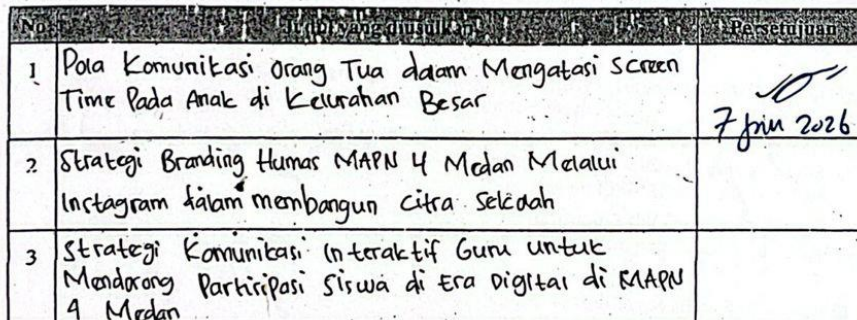 No. Judul yang diusulkan Persetujuan
1 Pola Komunikasi Orang Tua dalam Mengatasi Screen
Time Pada Anak di Kelurahan Besar
7 2026
2 Strategi Branding Humas MAPN 4 Medan Melalui
Instagram dalam membangun citra Sekolah
3 Strategi Komunikasi Interaktif Guru untuk
Mendorong Partisipasi Siswa di Era Digital di MAPN
4 Medan